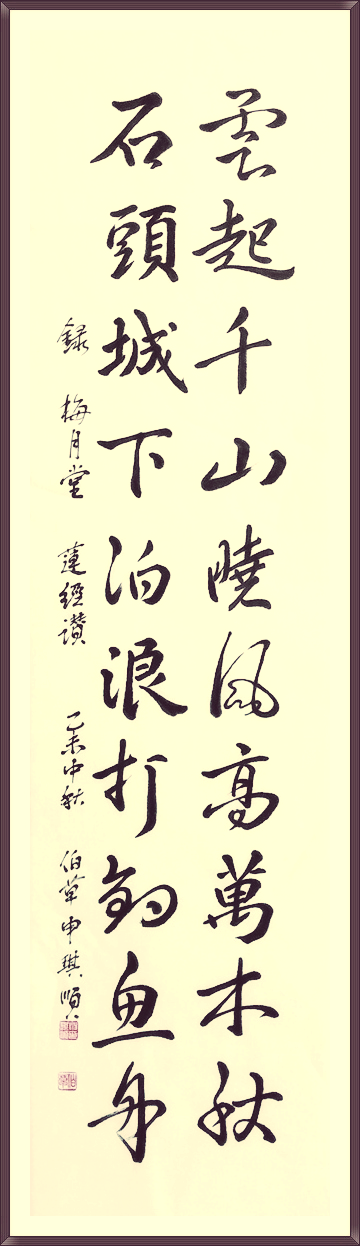 雲起千山曉風高萬木秋
石頭城下泊浪打釣魚舟
錄 梅月堂 蓮經讚 乙未中秋 伯草申琪順